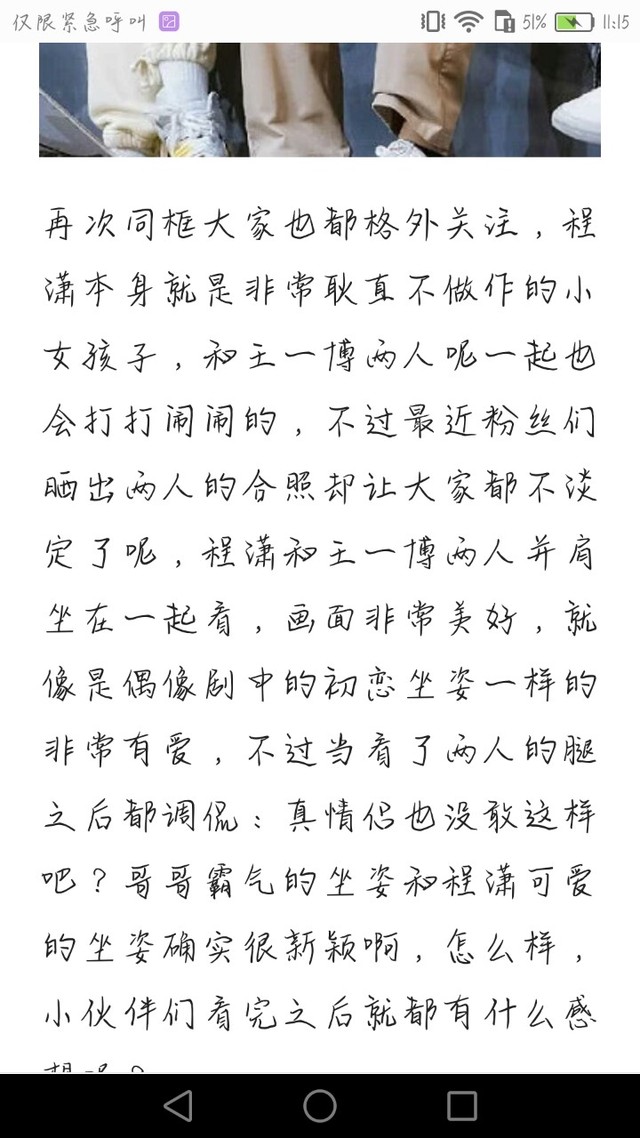 仅限紧急呼叫
51% 11:15
再次同框大家也都格外关注，程
潇本身就是非常耿直不做作的小
女孩子，和王一博两人呢一起也
会打打闹闹的，不过最近粉丝们
晒出两人的合照却让大家都不淡
定了呢，程潇和王一博两人并肩
坐在一起看，画面非常美好，就
像是偶像剧中的初恋坐姿一样的
非常有爱，不过当看了两人的腿
之后都调侃：真情侣也没敢这样
吧？哥哥霸气的坐姿和程潇可爱
的坐姿确实很新颖啊，怎么样，
小伙伴们看完之后就都有什么感